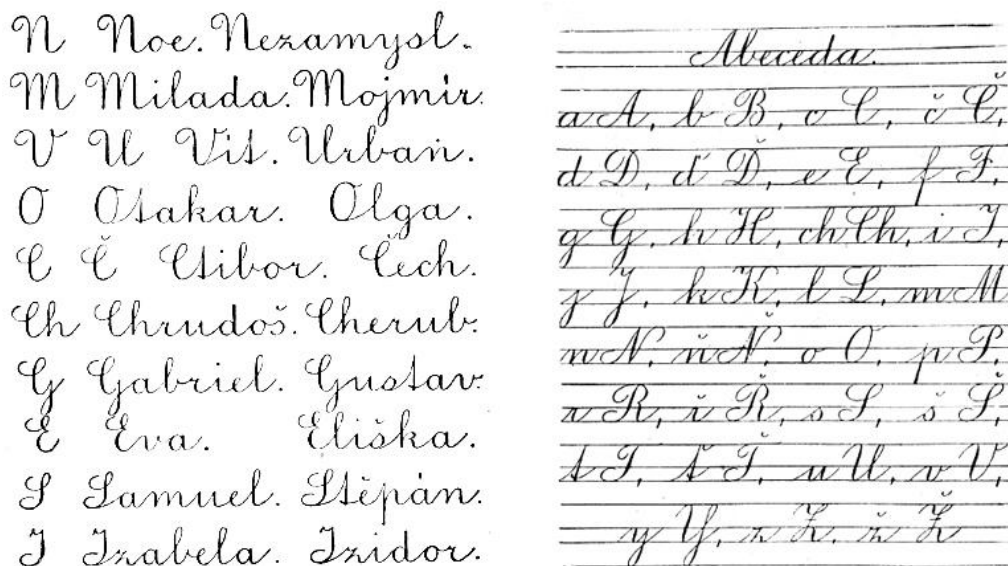 N Noe. Nezamysl.
M Milada. Mojmír.
V U Vít. Urban.
O Otakar. Olga.
C Č Ctibor. Čech.
Ch Chrudoš. Cherub.
G Gabriel. Gustav.
E Eva. Eliška.
S Samuel. Štěpán.
I Izabela. Izidor.
Abeceda.
a A, b B, c C, č Č,
d D, ď Ď, e E, f F,
g G, h H, ch Ch, i I,
j J, k K, l L, m M
n N, ň Ň, o O, p P,
r R, ř Ř, s S, š Š,
t T, ť Ť, u U, v V,
y Y, z Z, ž Ž